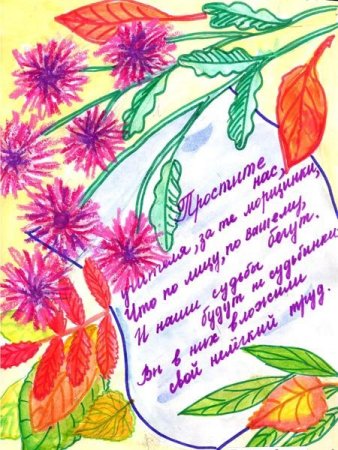 Простите нас,
учителя, за те морщинки,
Что по лицу, по вашему,
бегут.
И наши судьбы
будут не судьбинки
Вы в них вложили
свой нелёгкий труд.